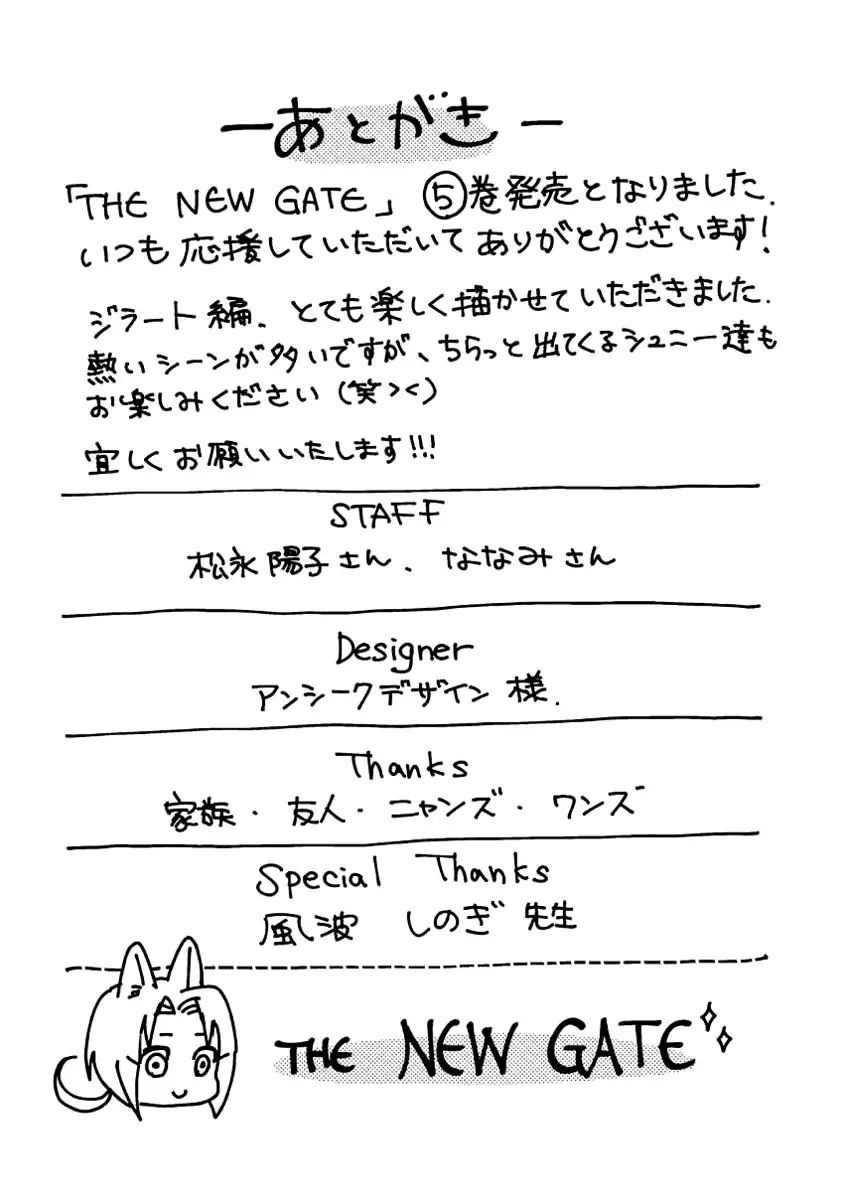 ーあとがきー
「THE NEW GATE」⑤巻発売となりました.
いつも応援していただいてありがとうございます!
ジラート編.とても楽しく描かせていただきました.
熱いシーンが多いですが、ちらっと出てくるシュニー達も
お楽しみください(笑><)
宜しくお願いいたします!!!
STAFF
松永陽子さん.ななみさん
Designer
アンシークデザイン様.
Thanks
家族・友人・ニャンズ・ワンズ
Special Thanks
風波しのぎ先生
THE NEW GATE